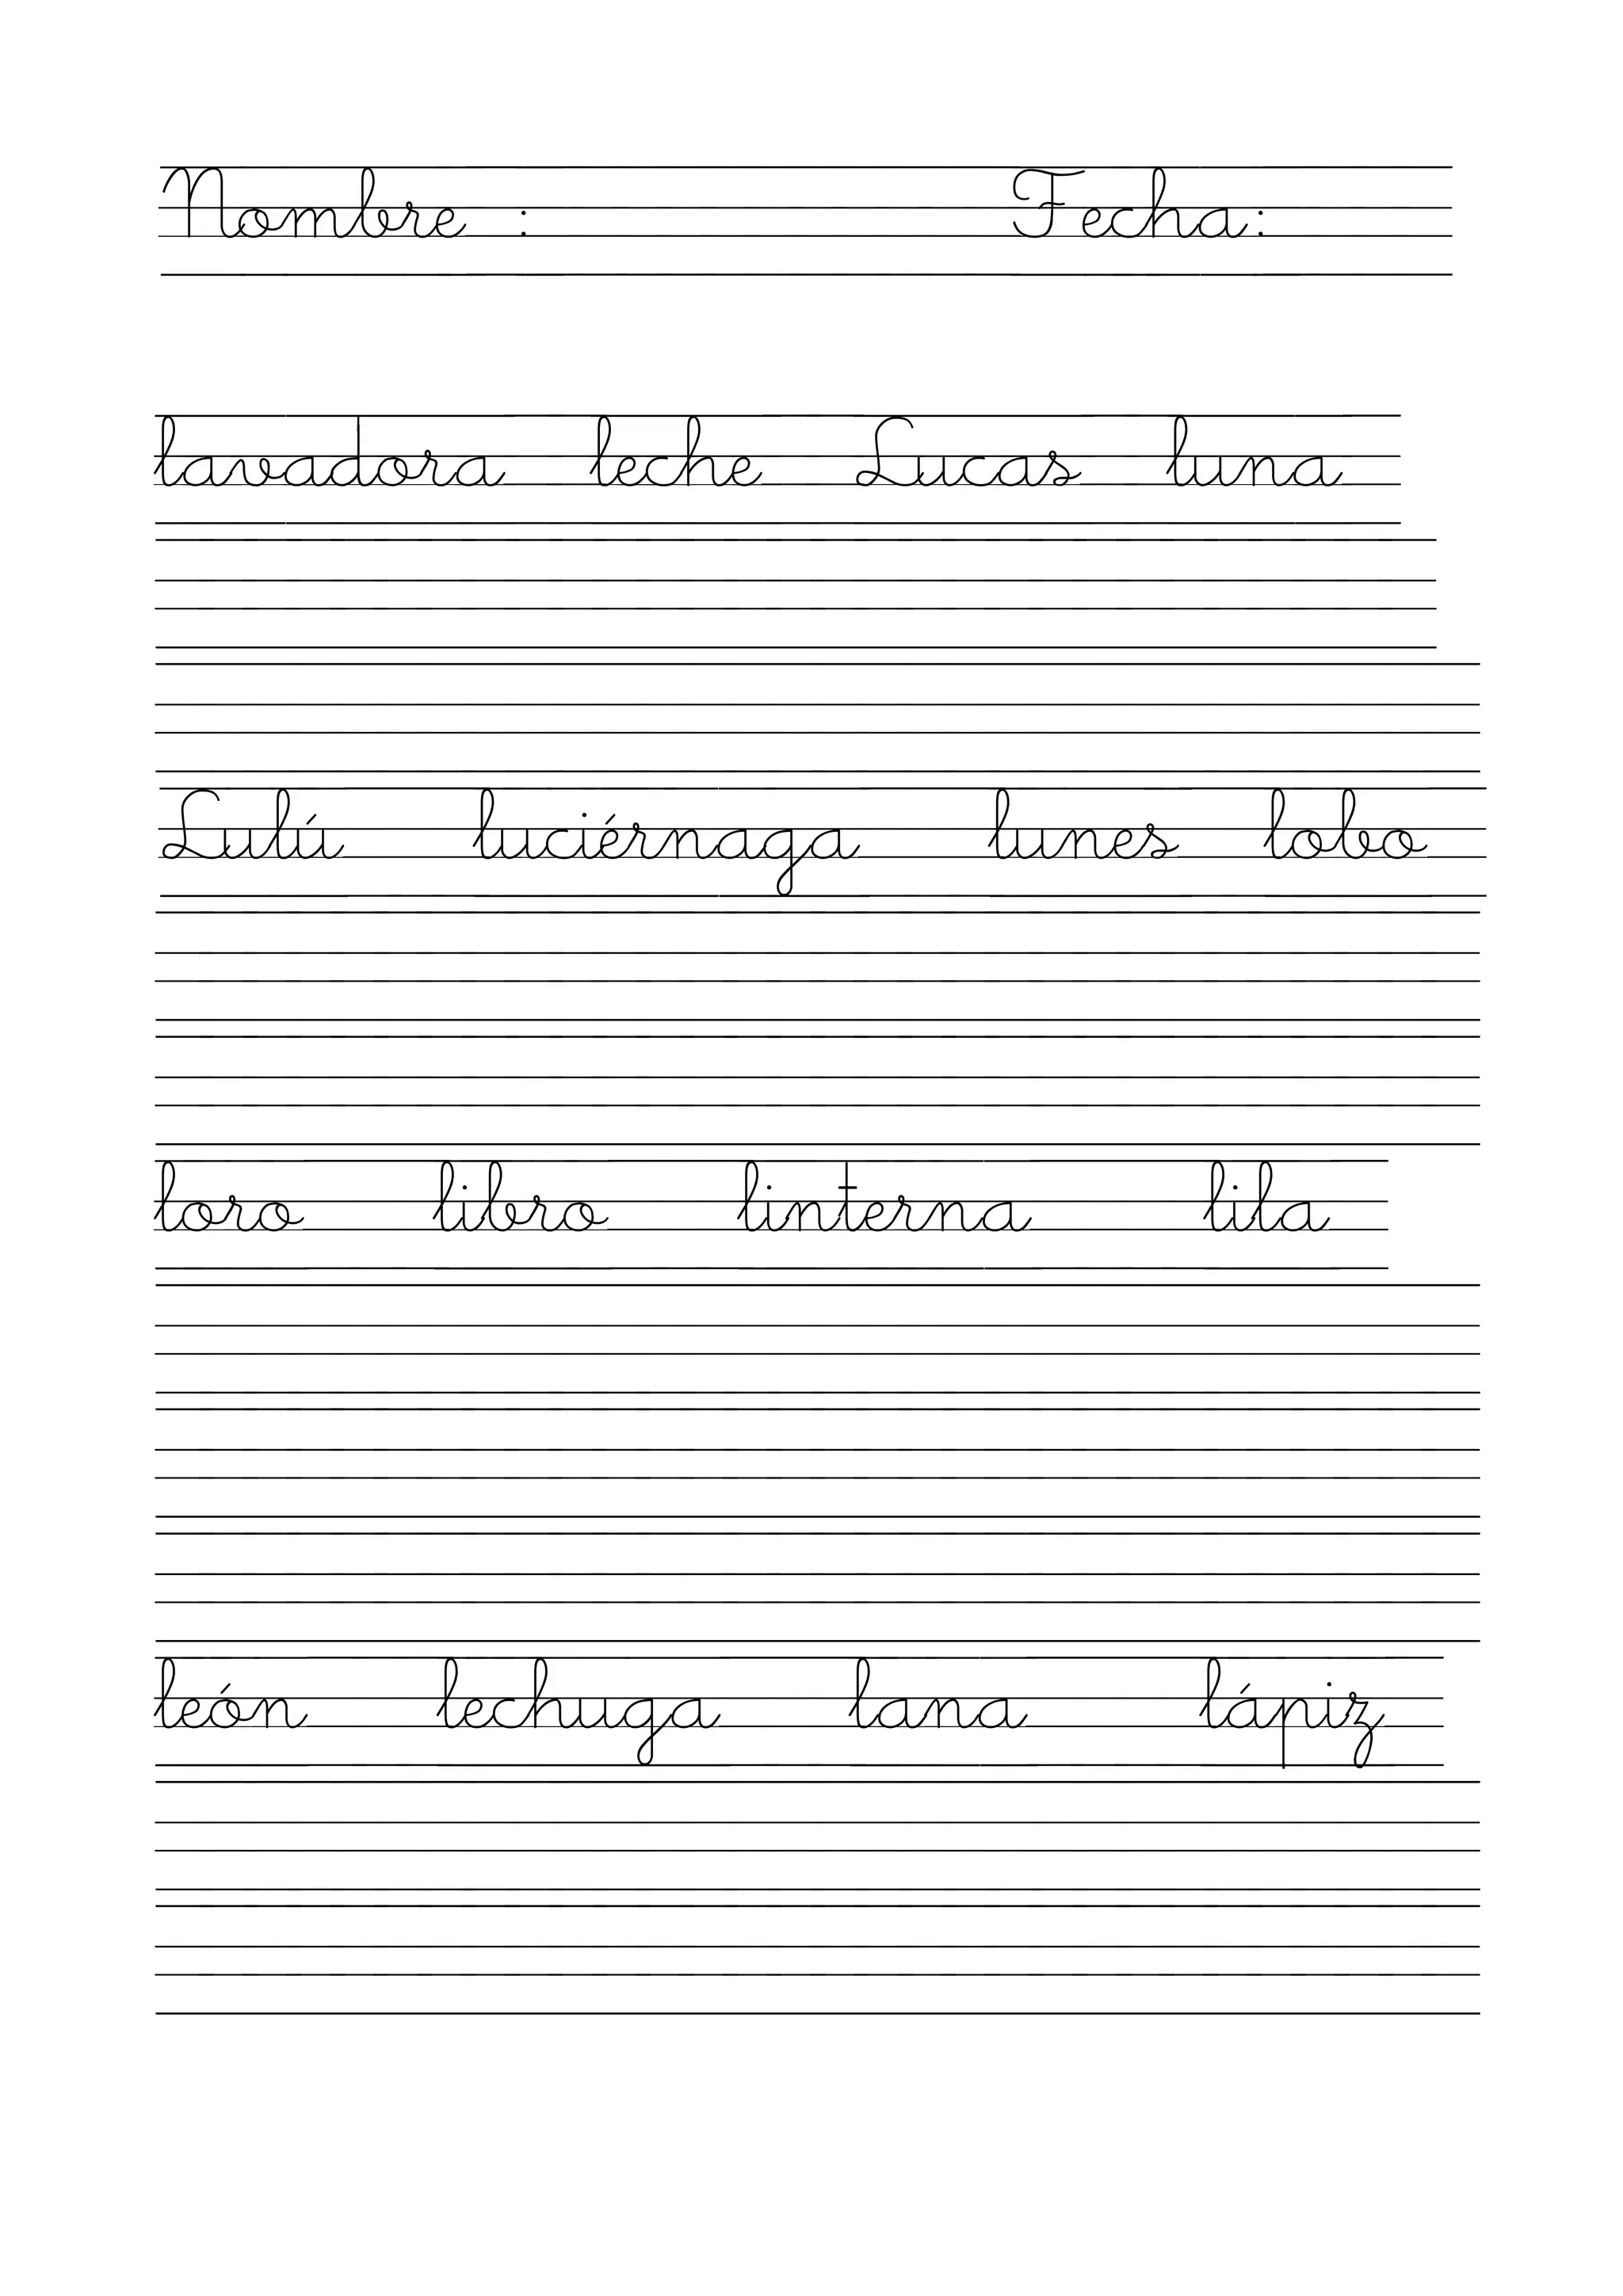 Nombre : Fecha:
lavadora leche Lucas luna
Lulú luciérnaga lunes lobo
loro libro linterna lila
león lechuga lana lápiz